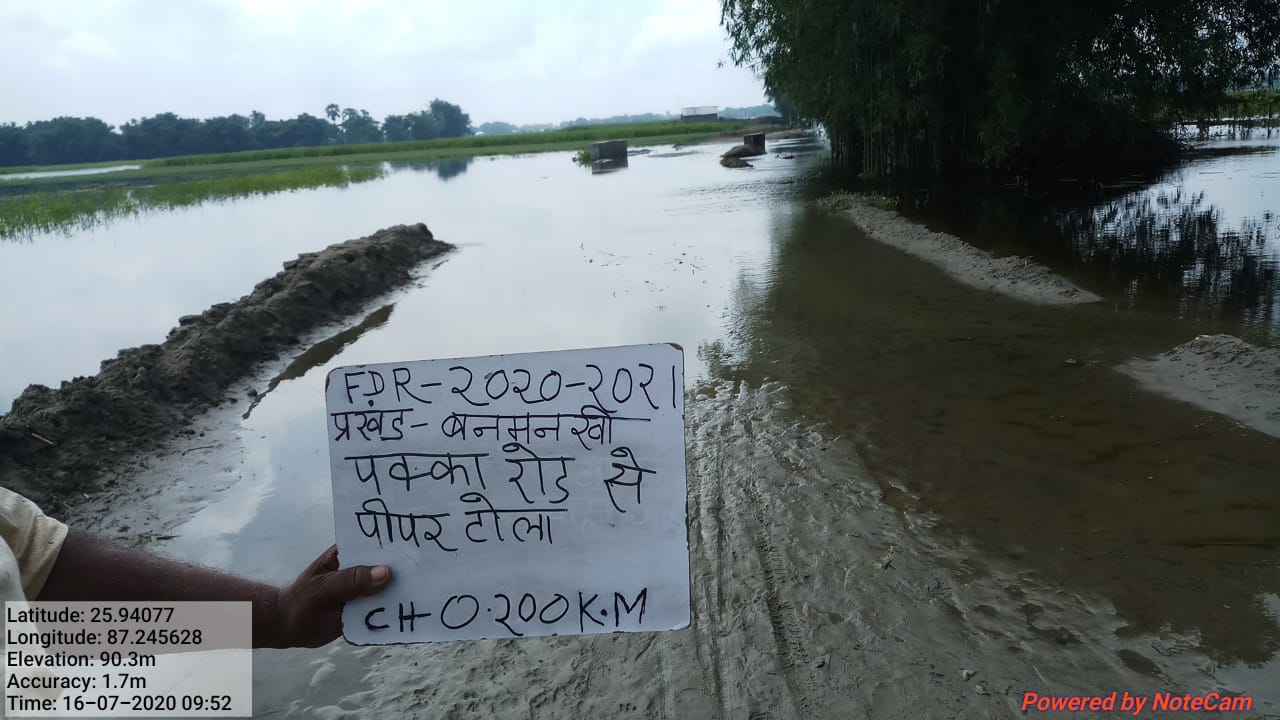 FDR-२०२०-२०२१
प्रखंड-बनमनखी
पक्का रोड से
पीपर टोला
CH 0.200K.M
Latitude: 25.94077
Longitude: 87.245628
Elevation: 90.3m
Accuracy: 1.7m
Time: 16-07-2020 09:52
Powered by NoteCam